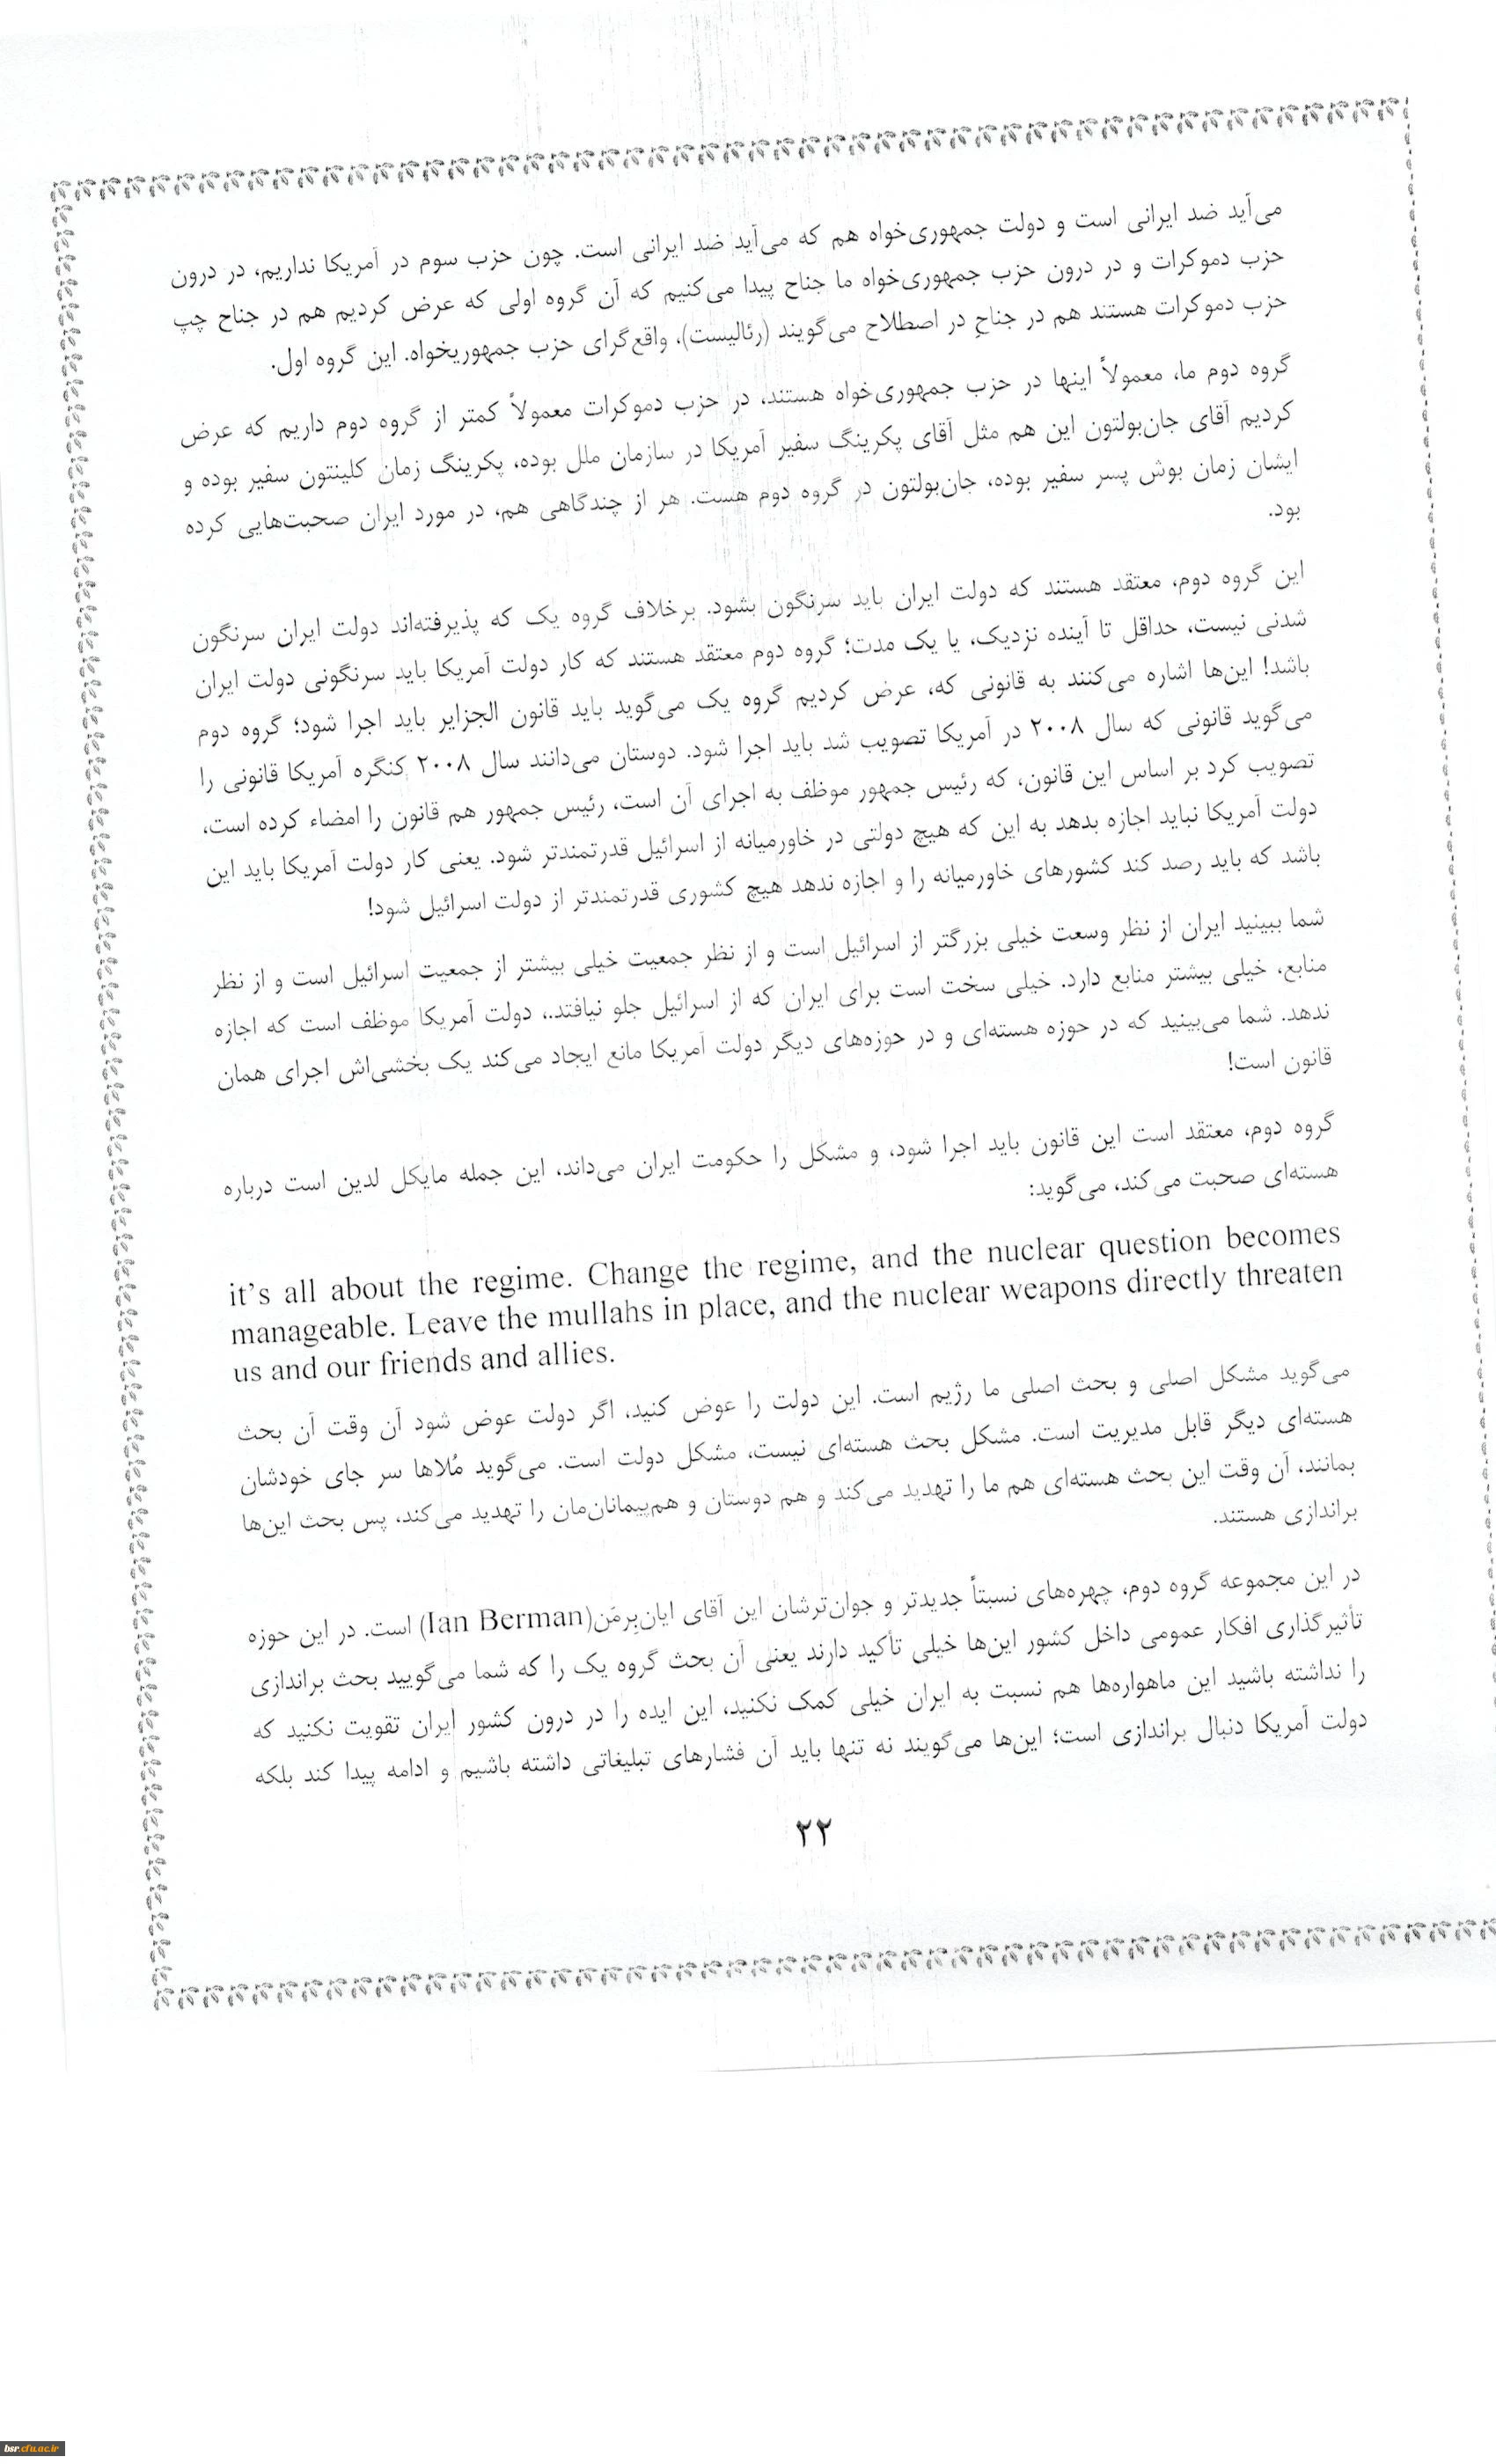 می‌آید ضد ایرانی است و دولت جمهوری‌خواه هم که می‌آید ضد ایرانی است. چون حزب سوم در آمریکا نداریم، در درون
حزب دموکرات و در درون حزب جمهوری‌خواه ما جناح پیدا می‌کنیم که آن گروه اولی که عرض کردیم هم در جناح چپ
حزب دموکرات هستند هم در جناحِ در اصطلاح می‌گویند (رئالیست)، واقع‌گرای حزب جمهوریخواه. این گروه اول.
گروه دوم ما، معمولاً اینها در حزب جمهوری‌خواه هستند، در حزب دموکرات معمولاً کمتر از گروه دوم داریم که عرض
کردیم آقای جان‌بولتون این هم مثل آقای پکرینگ سفیر آمریکا در سازمان ملل بوده، پکرینگ زمان کلینتون سفیر بوده و
ایشان زمان بوش پسر سفیر بوده، جان‌بولتون در گروه دوم هست. هر از چندگاهی هم، در مورد ایران صحبت‌هایی کرده
بود.
این گروه دوم، معتقد هستند که دولت ایران باید سرنگون بشود. برخلاف گروه یک که پذیرفته‌اند دولت ایران سرنگون
شدنی نیست، حداقل تا آینده نزدیک، یا یک مدت؛ گروه دوم معتقد هستند که کار دولت آمریکا باید سرنگونی دولت ایران
باشد! این‌ها اشاره می‌کنند به قانونی که، عرض کردیم گروه یک می‌گوید باید قانون الجزایر باید اجرا شود؛ گروه دوم
می‌گوید قانونی که سال ۲۰۰۸ در آمریکا تصویب شد باید اجرا شود. دوستان می‌دانند سال ۲۰۰۸ کنگره آمریکا قانونی را
تصویب کرد بر اساس این قانون، که رئیس جمهور موظف به اجرای آن است، رئیس جمهور هم قانون را امضاء کرده است،
دولت آمریکا نباید اجازه بدهد به این که هیچ دولتی در خاورمیانه از اسرائیل قدرتمندتر شود. یعنی کار دولت آمریکا باید این
باشد که باید رصد کند کشورهای خاورمیانه را و اجازه ندهد هیچ کشوری قدرتمندتر از دولت اسرائیل شود!
شما ببینید ایران از نظر وسعت خیلی بزرگتر از اسرائیل است و از نظر جمعیت خیلی بیشتر از جمعیت اسرائیل است و از نظر
منابع، خیلی بیشتر منابع دارد. خیلی سخت است برای ایران که از اسرائیل جلو نیافتد.، دولت آمریکا موظف است که اجازه
ندهد. شما می‌بینید که در حوزه هسته‌ای و در حوزه‌های دیگر دولت آمریکا مانع ایجاد می‌کند یک بخشی‌اش اجرای همان
قانون است!
گروه دوم، معتقد است این قانون باید اجرا شود، و مشکل را حکومت ایران می‌داند، این جمله مایکل لدین است درباره
هسته‌ای صحبت می‌کند، می‌گوید:
it's all about the regime. Change the regime, and the nuclear question becomes
manageable. Leave the mullahs in place, and the nuclear weapons directly threaten
us and our friends and allies.
می‌گوید مشکل اصلی و بحث اصلی ما رژیم است. این دولت را عوض کنید، اگر دولت عوض شود آن وقت آن بحث
هسته‌ای دیگر قابل مدیریت است. مشکل بحث هسته‌ای نیست، مشکل دولت است. می‌گوید مُلاها سر جای خودشان
بمانند، آن وقت این بحث هسته‌ای هم ما را تهدید می‌کند و هم دوستان و هم‌پیمانان‌مان را تهدید می‌کند، پس بحث این‌ها
براندازی هستند.
در این مجموعه گروه دوم، چهره‌های نسبتاً جدیدتر و جوان‌ترشان این آقای ایان‌بِرمَن(Ian Berman) است. در این حوزه
تأثیرگذاری افکار عمومی داخل کشور این‌ها خیلی تأکید دارند یعنی آن بحث گروه یک را که شما می‌گویید بحث براندازی
را نداشته باشید این ماهواره‌ها هم نسبت به ایران خیلی کمک نکنید، این ایده را در درون کشور ایران تقویت نکنید که
دولت آمریکا دنبال براندازی است؛ این‌ها می‌گویند نه تنها باید آن فشارهای تبلیغاتی داشته باشیم و ادامه پیدا کند بلکه
۲۲
bsr.cfu.ac.ir